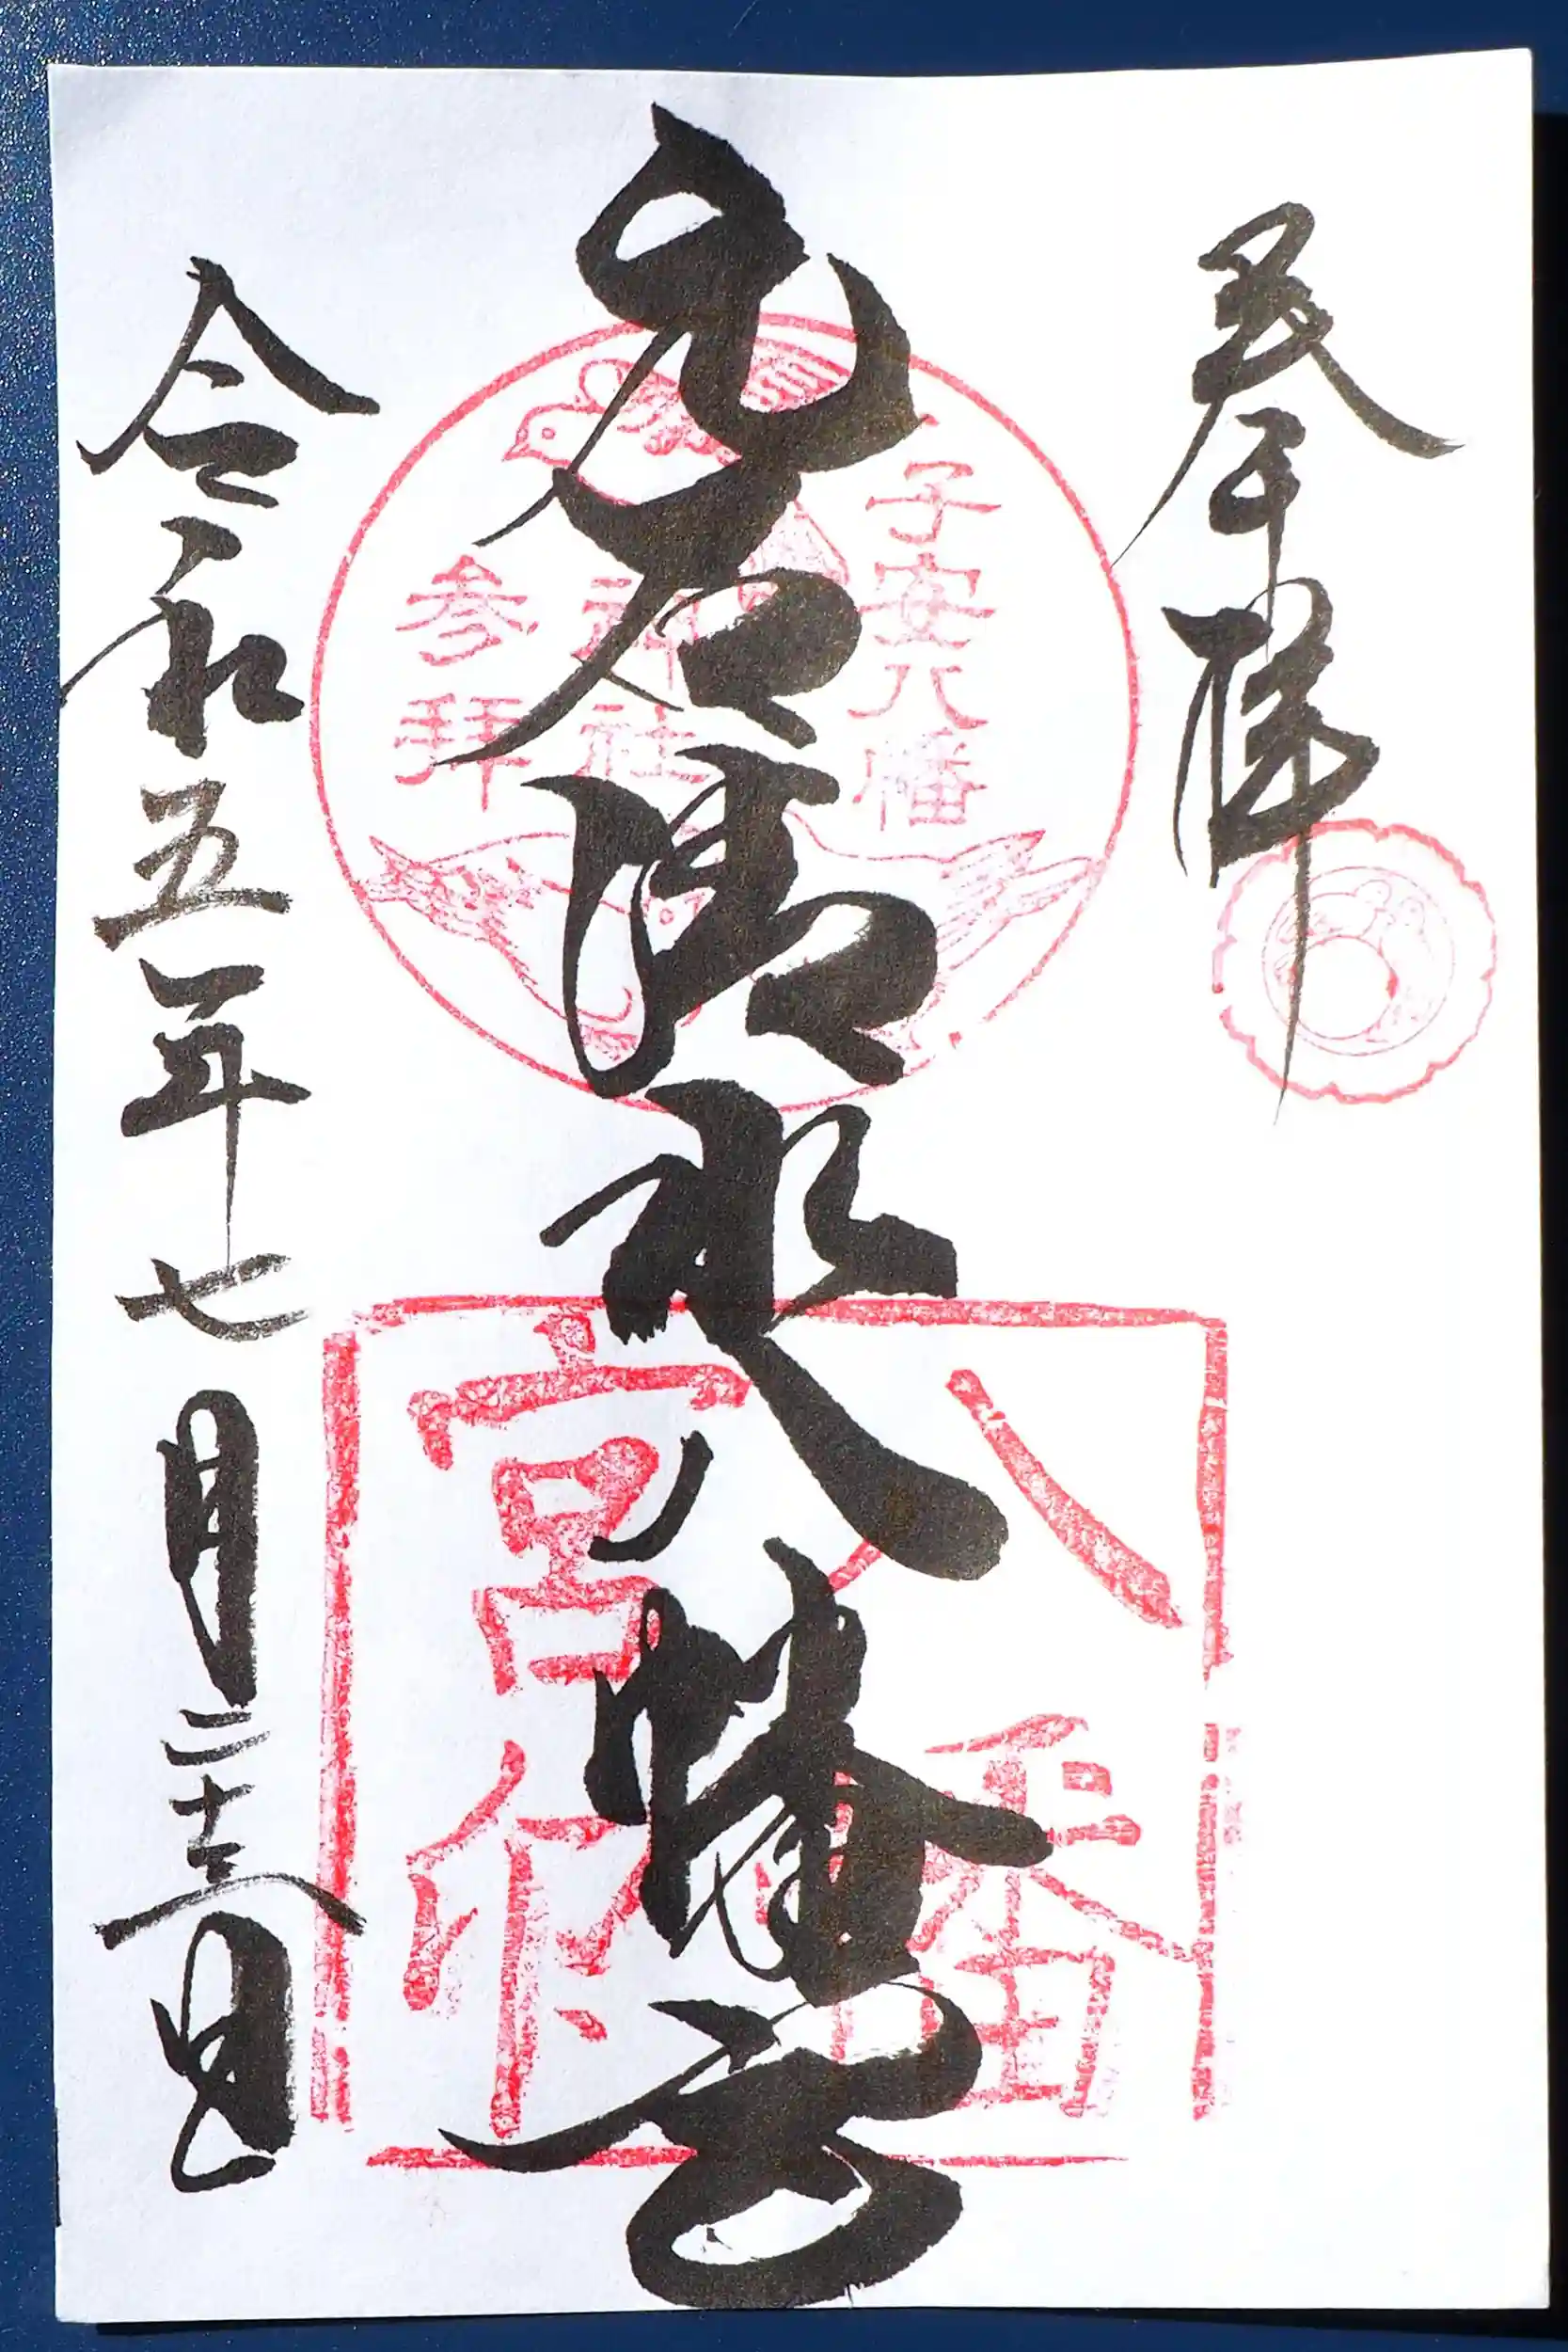 奉拝
元石清水八幡宮
令和五年七月二十三日
子安八幡
神社
参拝
八幡
宮印